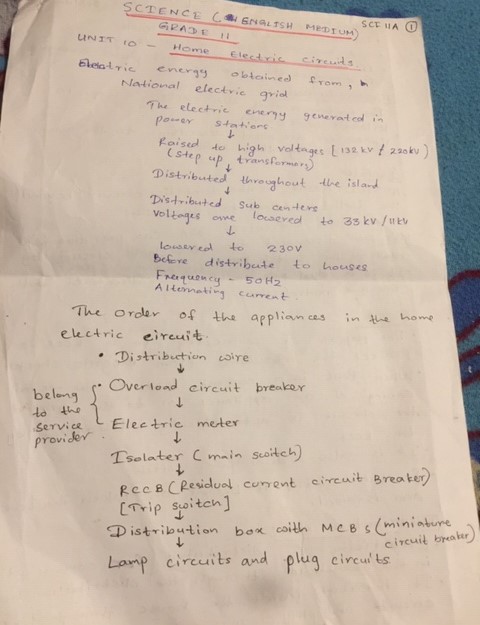 SCIENCE ( ENGLISH MEDIUM)
SCI 11A 1
GRADE 11
UNIT 10 - Home Electric circuits.
Electric energy obtained from,
National electric grid
The electric energy generated in
power stations
↓
Raised to high voltages [132 kV / 220kV)
(Step up transformers)
↓
Distributed throughout the island
↓
Distributed sub centers
Voltages are lowered to 33 kV /11kV
↓
lowered to 230V
Before distribute to houses
Frequency - 50Hz
Alternating current.
The order of the appliances in the home
electric circuit.
• Distribution wire
↓
• Overload circuit breaker
belong
to the
service
provider.
↓
Electric meter
↓
Isolater (main switch)
↓
RCCB (Residual current circuit Breaker)
[Trip switch]
↓
Distribution box with MCBs (miniature
circuit breaker)
↓
Lamp circuits and plug circuits